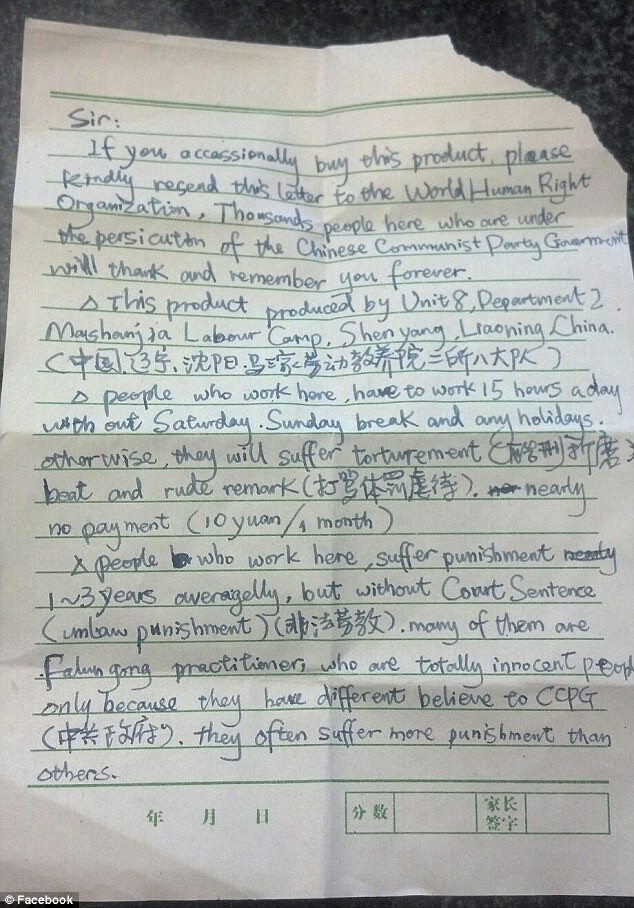 Sir:
If you occassionally buy this product, please
kindly resend this letter to the World Human Right
Organization, Thousands people here who are under
the persicution of the Chinese Communist Party Goverment
will thank and remember you forever.
△ This product produced by Unit 8, Department 2
Mashanjia Labour Camp, Shenyang, Liaoning, China.
(中国, 辽宁, 沈阳, 马三家劳动教养院二所八大队)
△ people who work here, have to work 15 hours a day
with out Saturday. Sunday break and any holidays.
otherwise, they will suffer torturement 折磨
beat and rude remark (打骂体罚虐待). nearly
no payment (10 yuan/1 month)
△ people who work here, suffer punishment
1~3 years averagelly, but without Court Sentence
(unlaw punishment) (非法劳教). many of them are
Falun gong practitioner, who are totally innocent people
only because they have different believe to CCPG
(中共政府). they often suffer more punishment than
others.
年 月 日
分数 家长签字
Facebook